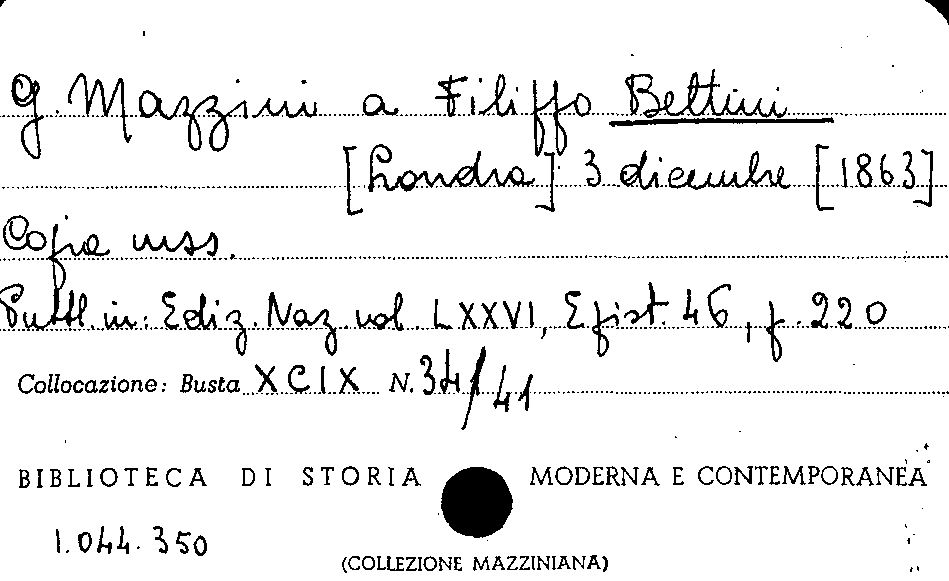 G. Mazzini a Filippo Bettini
[Londra] 3 dicembre [1863]
Copia mss.
Pubbl. in: Ediz. Naz. vol. LXXVI, Epist. 46, p. 220
Collocazione: Busta XCIX N. 34/41
BIBLIOTECA DI STORIA MODERNA E CONTEMPORANEA
1.044.350
(COLLEZIONE MAZZINIANA)